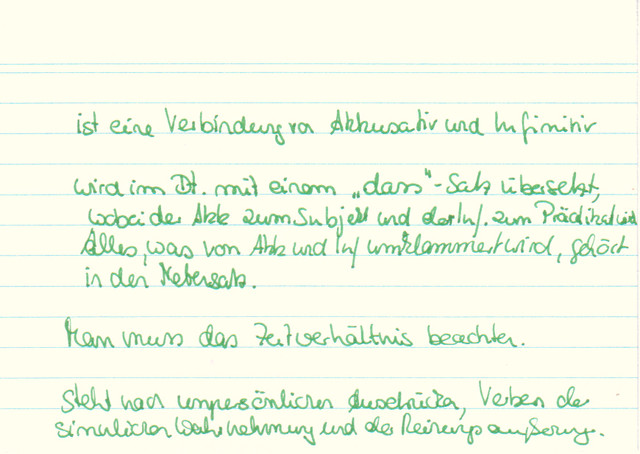 ist eine Verbindung von Akkusativ und Infinitiv
wird im Dt. mit einem „dass"-Satz übersetzt,
wobei der Akk zum Subjekt und der Inf. zum Prädikat wird
Alles, was von Akk und Inf umklammert wird, gehört
in den Nebensatz.
Man muss das Zeitverhältnis beachten.
Steht nach unpersönlichen Ausdrücken, Verben der
sinnlichen Wahrnehmung und der Meinungsäußerung.